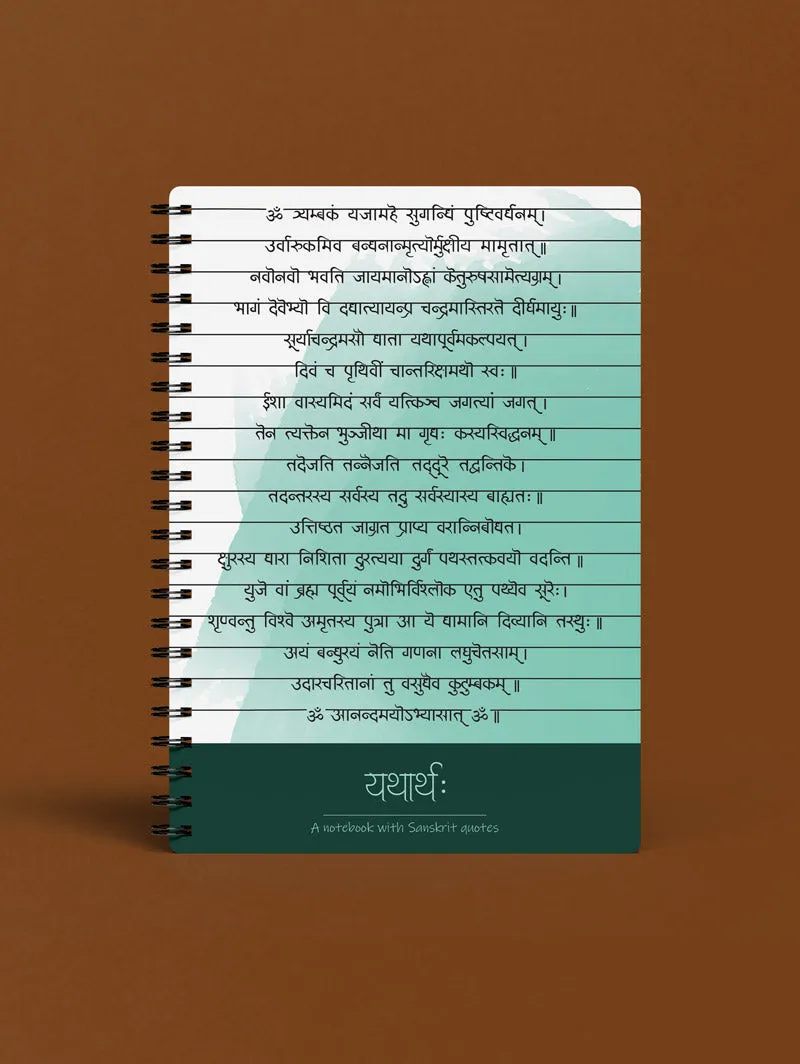 ॐ त्र्यम्बकं यजामहे सुगन्धिं पुष्टिवर्धनम्।
उर्वारुकमिव बन्धनान्मृत्योर्मुक्षीय मामृतात्॥
नवोनवो भवति जायमानोऽह्नां केतुरुषसामेत्यग्रम्।
भागं देवेभ्यो वि दधात्यायन्प्र चन्द्रमास्तिरते दीर्घमायुः॥
सूर्याचन्द्रमसौ धाता यथापूर्वमकल्पयत्।
दिवं च पृथिवीं चान्तरिक्षमथो स्वः॥
ईशा वास्यमिदं सर्वं यत्किञ्च जगत्यां जगत्।
तेन त्यक्तेन भुञ्जीथा मा गृधः कस्यस्विद्धनम्॥
तदेजति तन्नैजति तद्दूरे तद्वन्तिके।
तदन्तरस्य सर्वस्य तदु सर्वस्यास्य बाह्यतः॥
उत्तिष्ठत जाग्रत प्राप्य वरान्निबोधत।
क्षुरस्य धारा निशिता दुरत्यया दुर्गं पथस्तत्कवयो वदन्ति॥
युजे वां ब्रह्म पूर्व्यं नमोभिर्विश्लोक एतु पथ्येव सूरेः।
शृण्वन्तु विश्वे अमृतस्य पुत्रा आ ये धामानि दिव्यानि तस्थुः॥
अयं बन्धुरयं नेति गणना लघुचेतसाम्।
उदारचरितानां तु वसुधैव कुटुम्बकम्॥
ॐ आनन्दमयोऽभ्यासात् ॐ॥
यथार्थः
A notebook with Sanskrit quotes